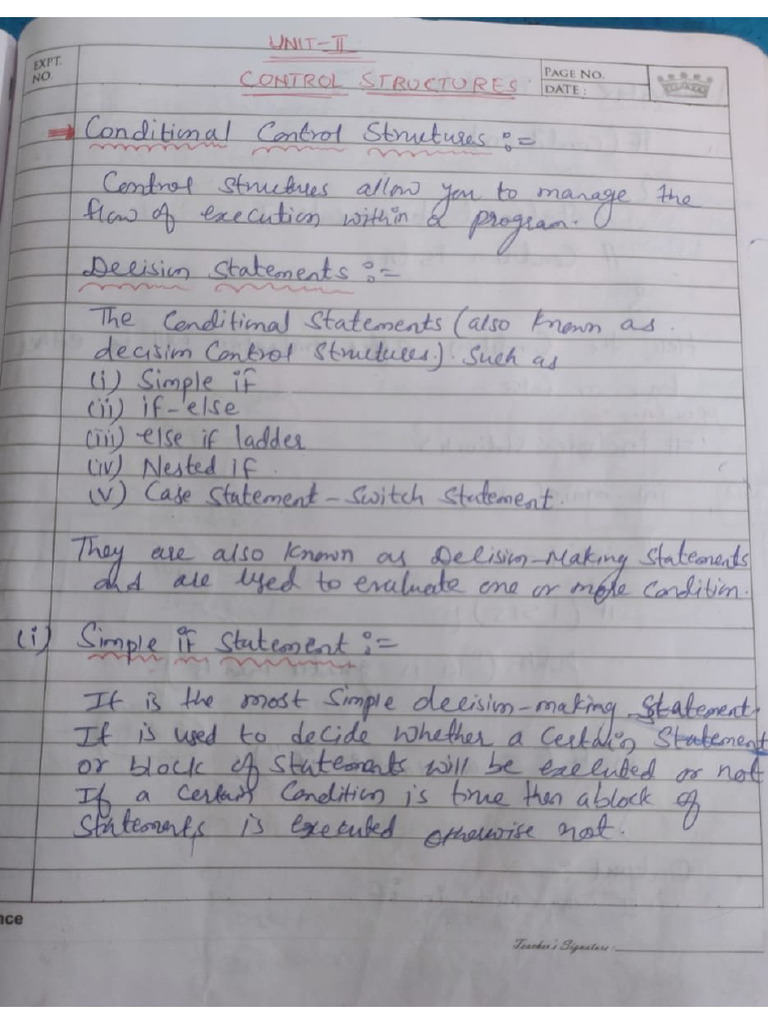 UNIT-II
EXPT. NO.
CONTROL STRUCTURES
PAGE NO.
DATE :
⇒ Conditional Control Structures :=
Control structures allow you to manage the
flow of execution within a program.
Decision Statements :=
The Conditional Statements (also known as
decision Control Structures.) Such as
(i) Simple if
(ii) if-else
(iii) else if ladder
(iv) Nested if.
(v) Case Statement - Switch Statement.
They are also known as Decision-Making Statements
and are used to evaluate one or more Condition.
(i) Simple if Statement :=
It is the most Simple decision-making Statement.
It is used to decide whether a certain Statement
or block of Statements will be executed or not
If a certain Condition is true then a block of
Statements is executed otherwise not.
nce
Teacher's Signature :